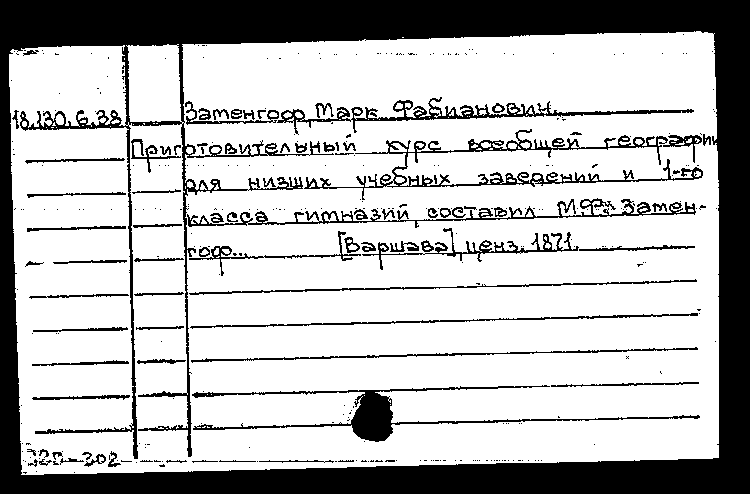 18.130.6.38 Заменгоф, Марк Фабианович.
Приготовительный курс всеобщей географии
для низших учебных заведений и 1-го
класса гимназий, составил М.Ф. Замен-
гоф... [Варшава], ценз. 1871.
320-302